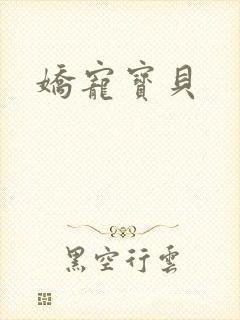 嬌寵寶貝
黑空行雲